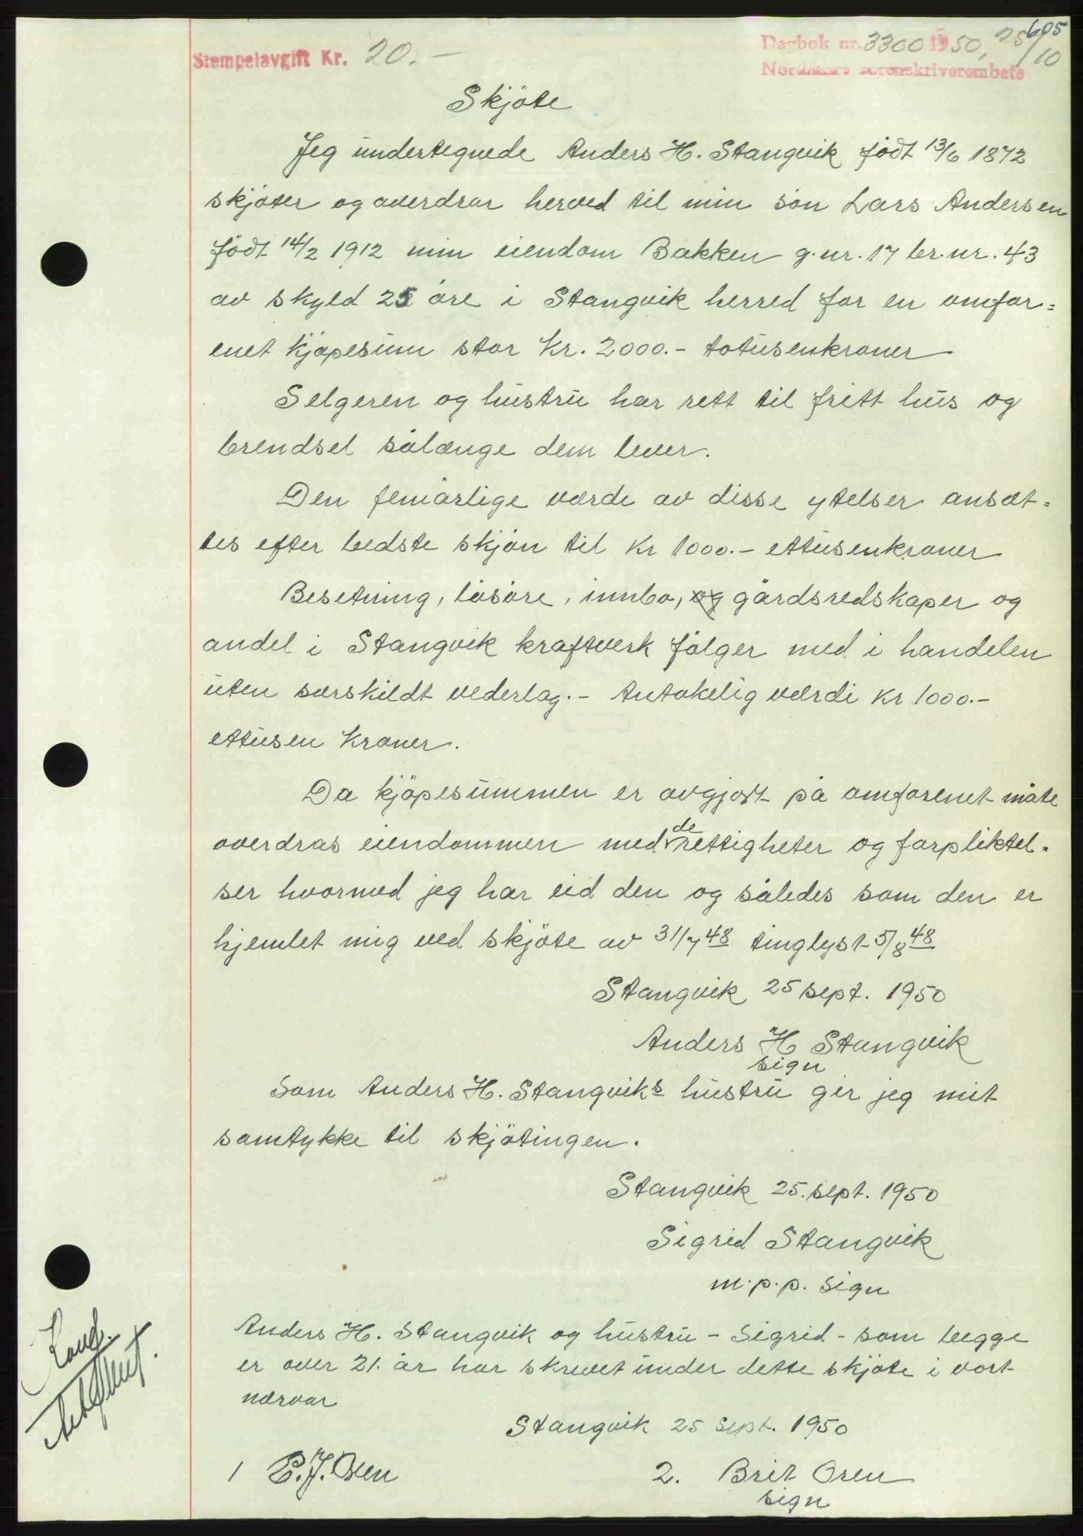 605
Stempelavgift Kr. 20.-
Dagbok nr. 3300 1950, 25/10
Nordmøre sorenskriverembete
Skjöte
Jeg undertegnede Anders H. Stangvik födt 13/6 1872
skjöter og overdrar herved til min sön Lars Andersen
födt 14/2 1912 min eiendom Bakken g.nr. 17 br.nr. 43
av skyld 25 öre i Stangvik herred for en omfor=
enet kjöpesum stor Kr. 2000.- totusenkroner
Selgeren og hustru har rett til fritt hus og
brendsel sålænge dem lever.
Den femårlige værde av disse ytelser ansæt=
tes efter bedste skjön til Kr 1000.- ettusenkroner
Besetning, lösöre, innbo, og gårdsredskaper og
andel i Stangvik kraftverk fölger med i handelen
uten særskildt vederlag.- Antakelig værdi Kr 1000.-
ettusen Kroner.
Da kjöpesummen er avgjort på omforenet måte
overdras eiendommen med de rettigheter og forpliktel=
ser hvormed jeg har eid den og således som den er
hjemlet mig ved skjöte av 31/7 48 tinglyst 5/8 48
Stangvik 25 sept. 1950
Anders H Stangvik
sign
Som Anders H. Stangviks hustru gir jeg mit
samtykke til skjötingen.
Stangvik 25. sept. 1950
Sigrid Stangvik
m.p.p. sign
Anders H. Stangvik og hustru - Sigrid - som begge
er over 21. år har skrevet under dette skjöte i vort
nærvær
Stangvik 25 sept. 1950
1 E. J. Osen 2. Brit Osen
sign